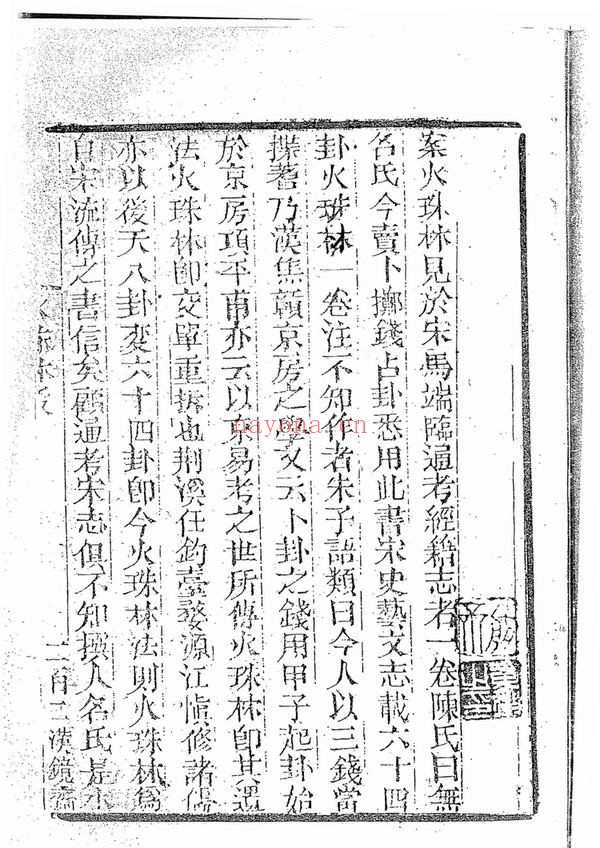 案火珠林見於宋馬端臨通考經籍志者一卷陳氏曰無
名氏今賣卜擲錢占卦悉用此書宋史藝文志載六十四
卦火珠林一卷注不知作者朱子語類曰今人以三錢當
揲蓍乃漢焦贛京房之學又云卜卦之錢用甲子起卦始
於京房項平甫亦云以京易考之世所傳火珠林即其遺
法火珠林即交單重拆也荆溪任釣臺婺源江愼修諸儒
亦以後天八卦変六十四卦即今火珠林法則火珠林爲
自宋流傳之書信矣顧通考宋志俱不知撰人名氏是本
火珠林
二百二漢鏡齋
nayona.cn